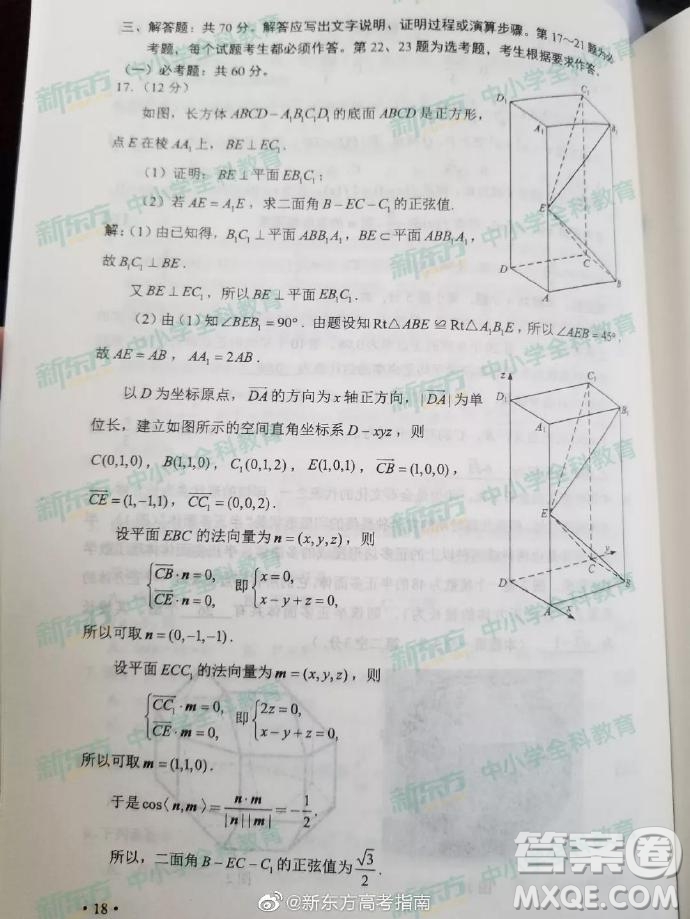 三、解答题：共 70 分。解答应写出文字说明、证明过程或演算步骤。第 17～21 题为必
考题，每个试题考生都必须作答。第 22、23 题为选考题，考生根据要求作答。
（一）必考题：共 60 分。
17.（12 分）
如图，长方体 ABCD－A₁B₁C₁D₁ 的底面 ABCD 是正方形，
点 E 在棱 AA₁ 上，BE⊥EC₁.
（1）证明：BE⊥平面 EB₁C₁；
（2）若 AE＝A₁E，求二面角 B－EC－C₁ 的正弦值.
解：（1）由已知得，B₁C₁⊥平面 ABB₁A₁，BE⊂平面 ABB₁A₁，
故 B₁C₁⊥BE.
又 BE⊥EC₁，所以 BE⊥平面 EB₁C₁.
（2）由（1）知∠BEB₁＝90°. 由题设知 Rt△ABE≌Rt△A₁B₁E，所以∠AEB＝45°，
故 AE＝AB，AA₁＝2AB.
以 D 为坐标原点，DA 的方向为 x 轴正方向，|DA| 为单
位长，建立如图所示的空间直角坐标系 D－xyz，则
C(0,1,0)，B(1,1,0)，C₁(0,1,2)，E(1,0,1)，CB＝(1,0,0)，
CE＝(1,−1,1)，CC₁＝(0,0,2).
设平面 EBC 的法向量为 n＝(x,y,z)，则
{CB·n＝0, 即 {x＝0,
{CE·n＝0, {x−y＋z＝0,
所以可取 n＝(0,−1,−1).
设平面 ECC₁ 的法向量为 m＝(x,y,z)，则
{CC₁·m＝0, 即 {2z＝0,
{CE·m＝0, {x−y＋z＝0,
所以可取 m＝(1,1,0).
于是 cos⟨n,m⟩＝n·m/|n||m|＝−1/2.
所以，二面角 B－EC－C₁ 的正弦值为 √3/2.
·18·
D₁ C₁ A₁ B₁ E D C A B
z D₁ C₁ A₁ B₁ E D C y A B x
新东方 中小学全科教育
新东方 中小学全科教育
新东方 中小学全科教育
新东方 中小学全科教育
新东方 中小学全科教育
新东方 中小学全科教育
@新东方高考指南
答案圈
MXQE.COM